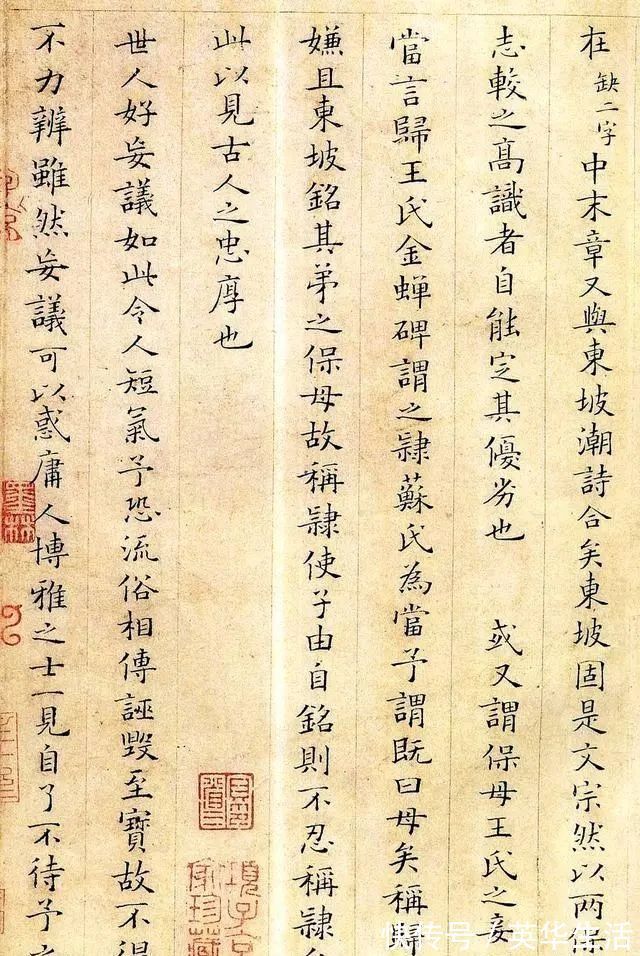 在缺二字中末章又與東坡潮詩合矣東坡固是文宗然以两保
志較之髙識者自能定其優劣也 或又謂保母王氏之妾
當言歸王氏金蟬碑謂之隷蘇氏為當予謂既曰母矣稱歸
嫌且東坡銘其弟之保母故稱隷使子由自銘則不忍稱隷
此以見古人之忠厚也
世人好妄議如此令人短氣予恐流俗相傳誣毀至寶故不得
不力辨雖然妄議可以惑庸人博雅之士一見自了不待予之
墨林
項子京家珍藏
快传号 / 英华生活